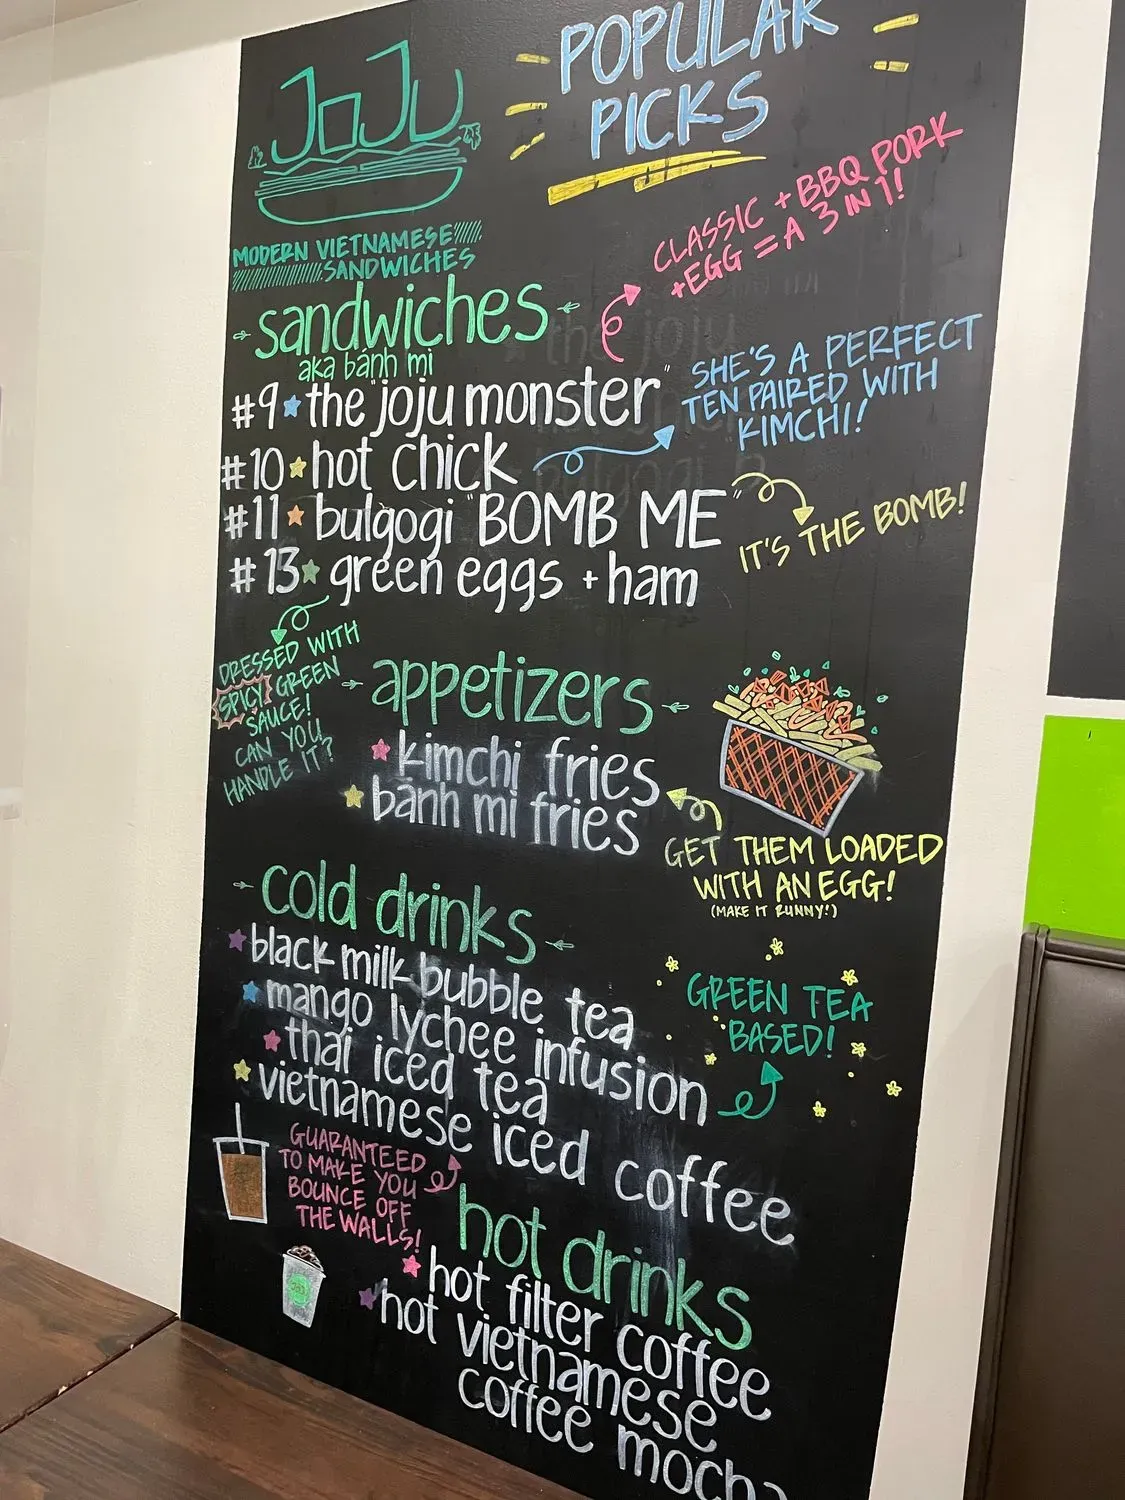 JoJu
MODERN VIETNAMESE
SANDWICHES
POPULAR
PICKS
CLASSIC + BBQ PORK
+EGG = A 3 IN 1!
sandwiches
aka bánh mi
#9 the "joju monster"
#10 hot chick
#11 bulgogi "BOMB ME"
#13 green eggs + ham
SHE'S A PERFECT
TEN PAIRED WITH
KIMCHI!
IT'S THE BOMB!
DRESSED WITH
SPICY GREEN
SAUCE!
CAN YOU
HANDLE IT?
appetizers
kimchi fries
bánh mi fries
GET THEM LOADED
WITH AN EGG!
(MAKE IT RUNNY!)
cold drinks
black milk bubble tea
mango lychee infusion
thai iced tea
vietnamese iced coffee
GREEN TEA
BASED!
GUARANTEED
TO MAKE YOU
BOUNCE OFF
THE WALLS!
hot drinks
hot filter coffee
hot vietnamese
coffee mocha